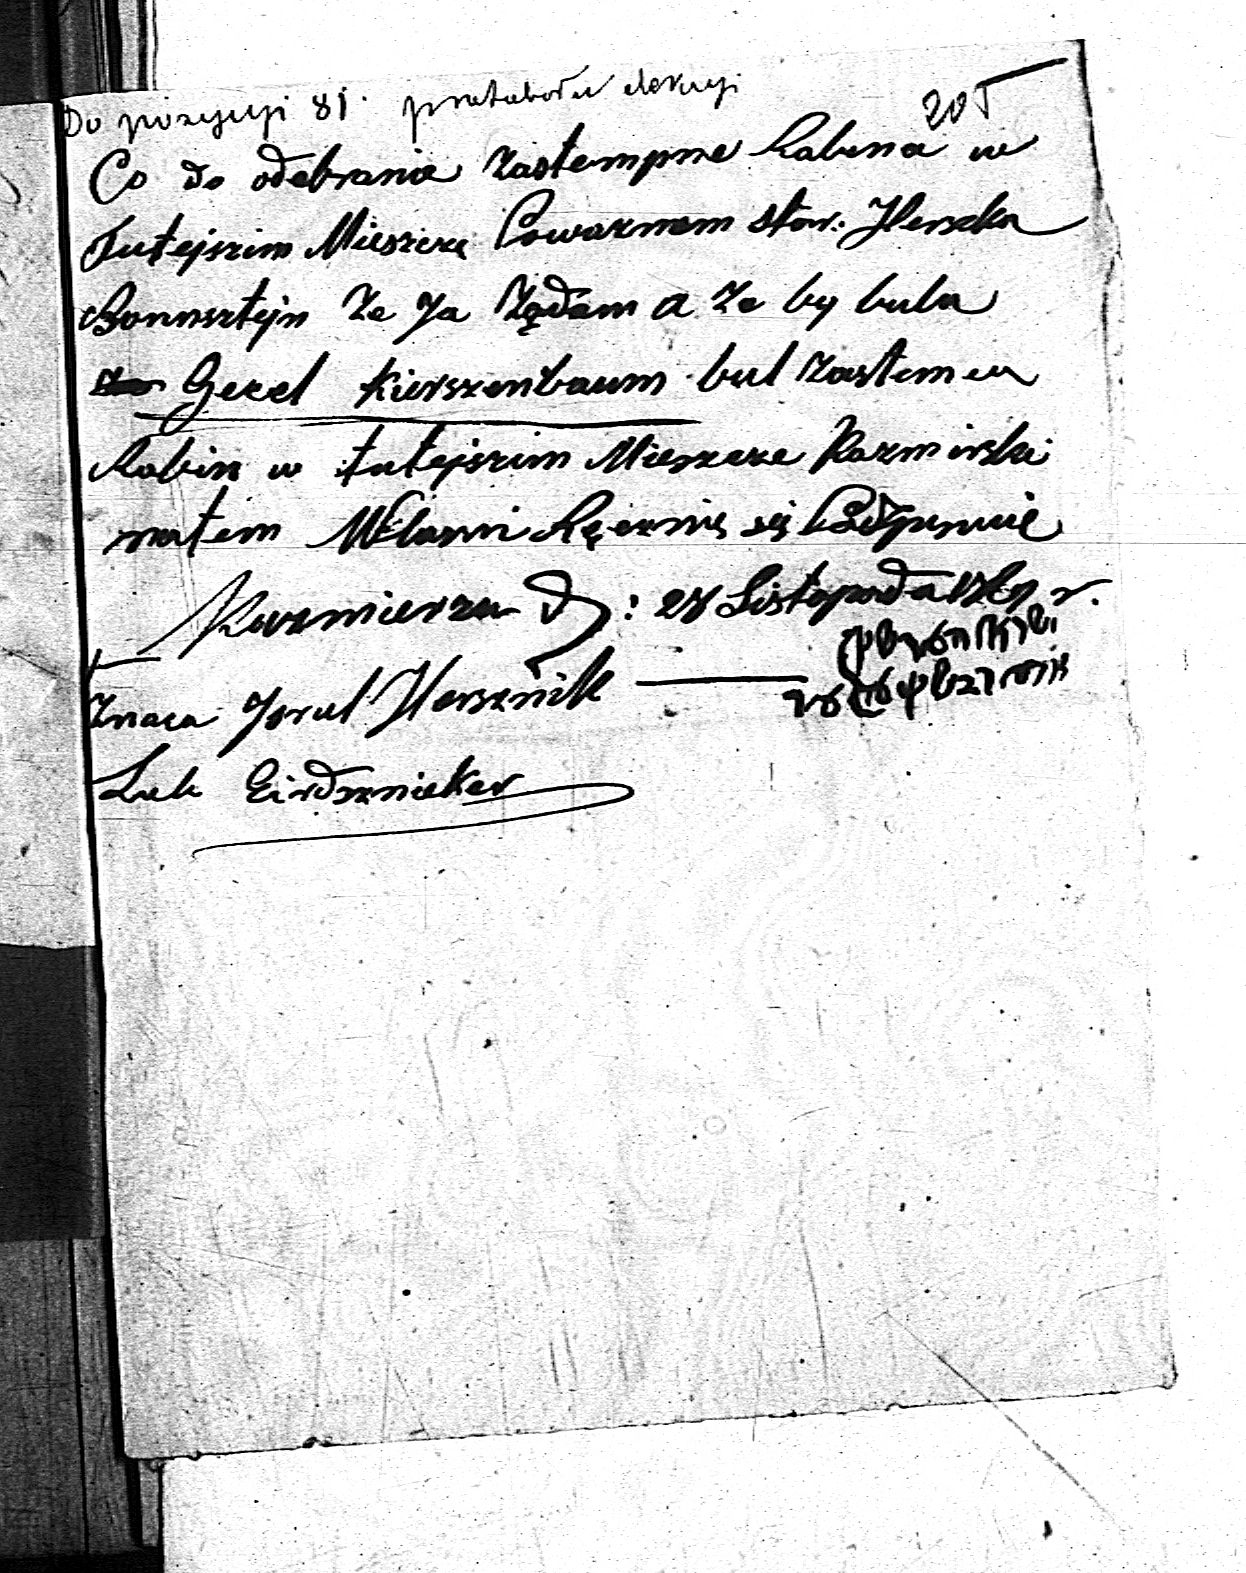 Do pozycyi 81. protokołu elekcyi
205
Co do odebrania zastempne Rabena w
Tutejszim Mieszczę Powaznem stow. Herszka
Bonnsztejn Ze Ja Żądam a Ze by bula
Gecel Kierszenbaum bul zastem w
Rabin w tutejszim Mieszcze Kazmirski
natem Własni Ręcznię się Podpiszuię
Kuzmierza D: 28 Listopada 1869 r.
Znaca Jsrul Hersznik
Lub